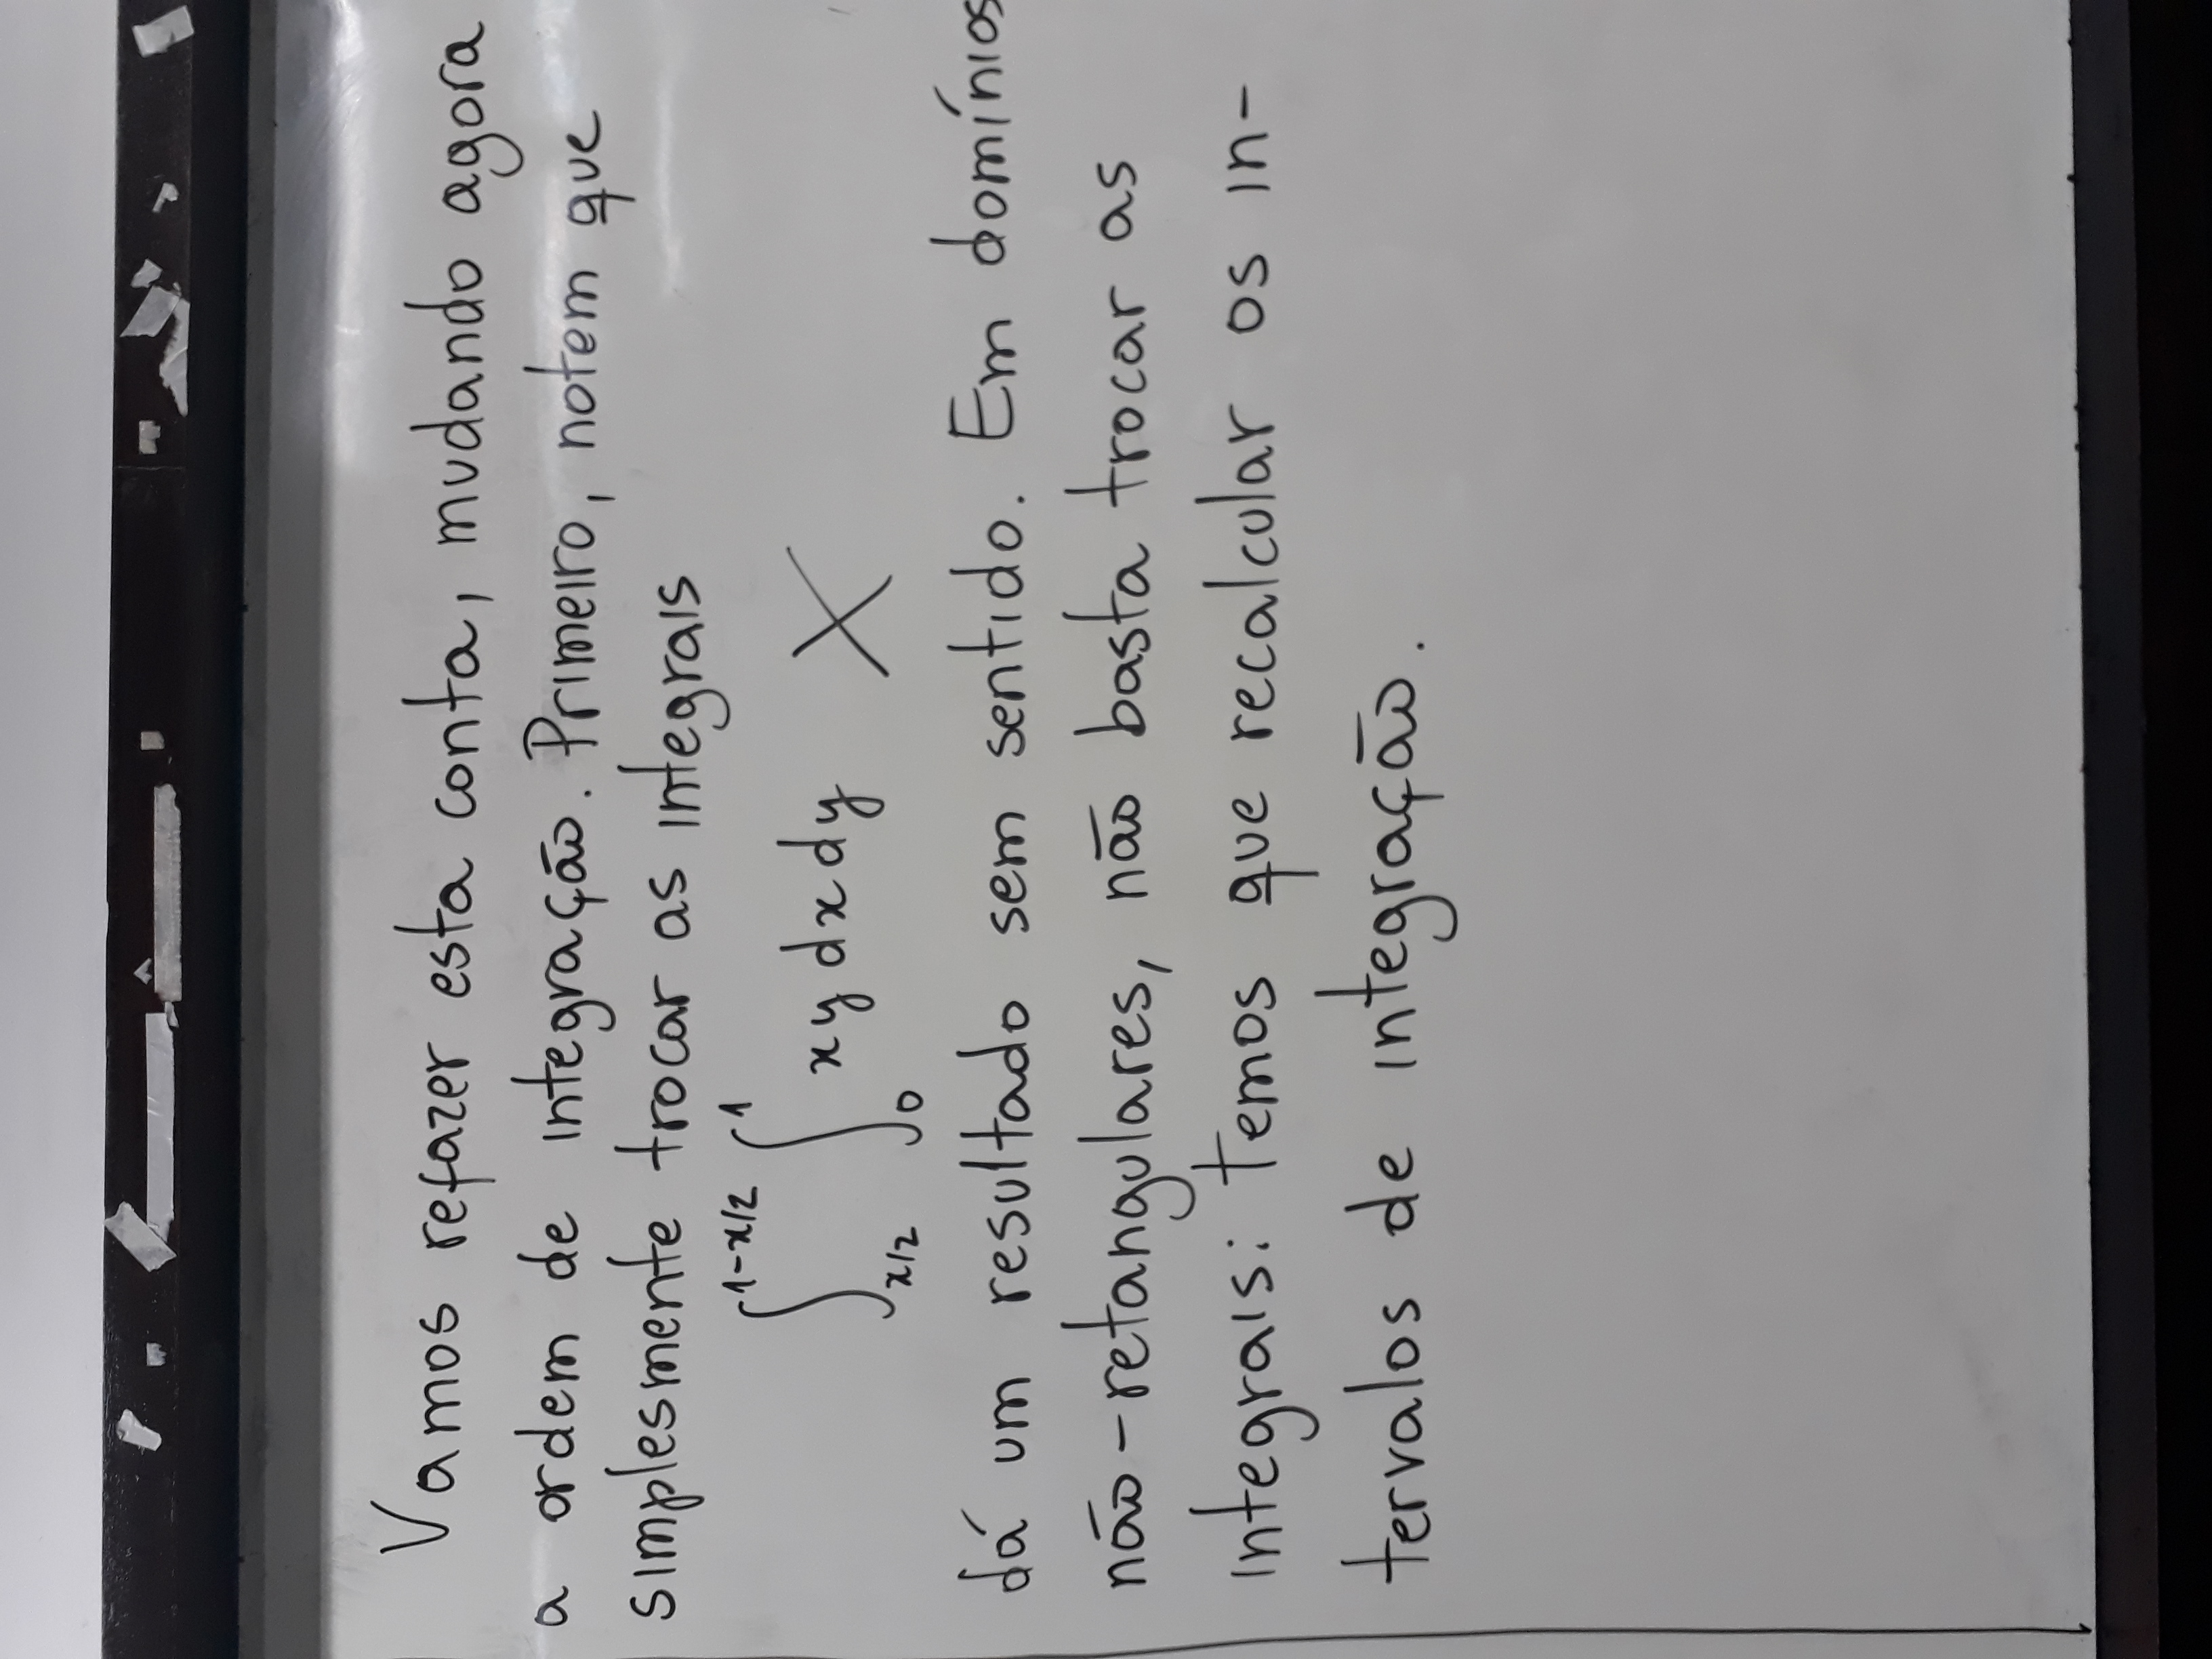 Vamos refazer esta conta, mudando agora
a ordem de integração. Primeiro, notem que
simplesmente trocar as integrais
∫_{x/2}^{1-x/2} ∫_0^1 xy dx dy X
dá um resultado sem sentido. Em domínios
não-retangulares, não basta trocar as
integrais: temos que recalcular os in-
tervalos de integração.